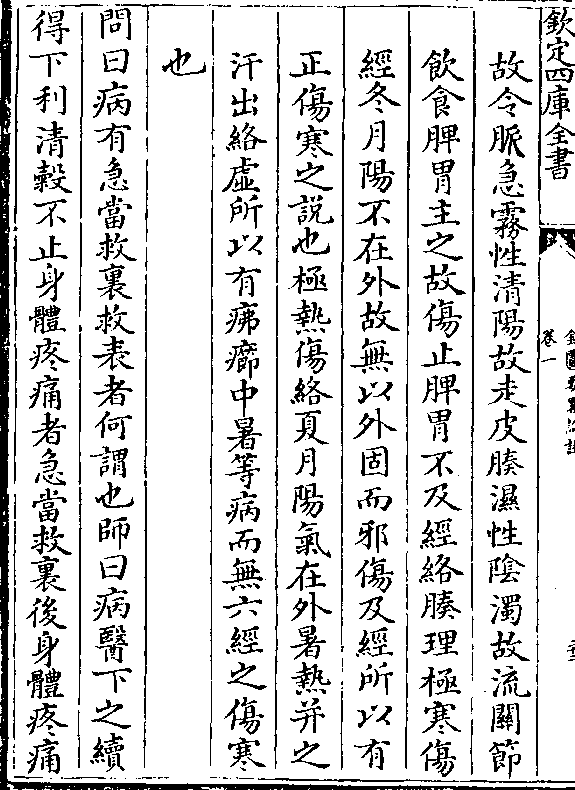 欽定四庫全書
卷一
故令脈急霧性清陽故走皮腠濕性陰濁故流關節
飲食脾胃主之故傷止脾胃不及經絡腠理極寒傷
經冬月陽不在外故無以外固而邪傷及經所以有
正傷寒之説也極熱傷絡夏月陽氣在外暑熱并之
汗出絡虛所以有痱癤中暑等病而無六經之傷寒
也
問曰病有急當救裏救表者何謂也師曰病醫下之續
得下利清穀不止身體疼痛者急當救裏後身體疼痛